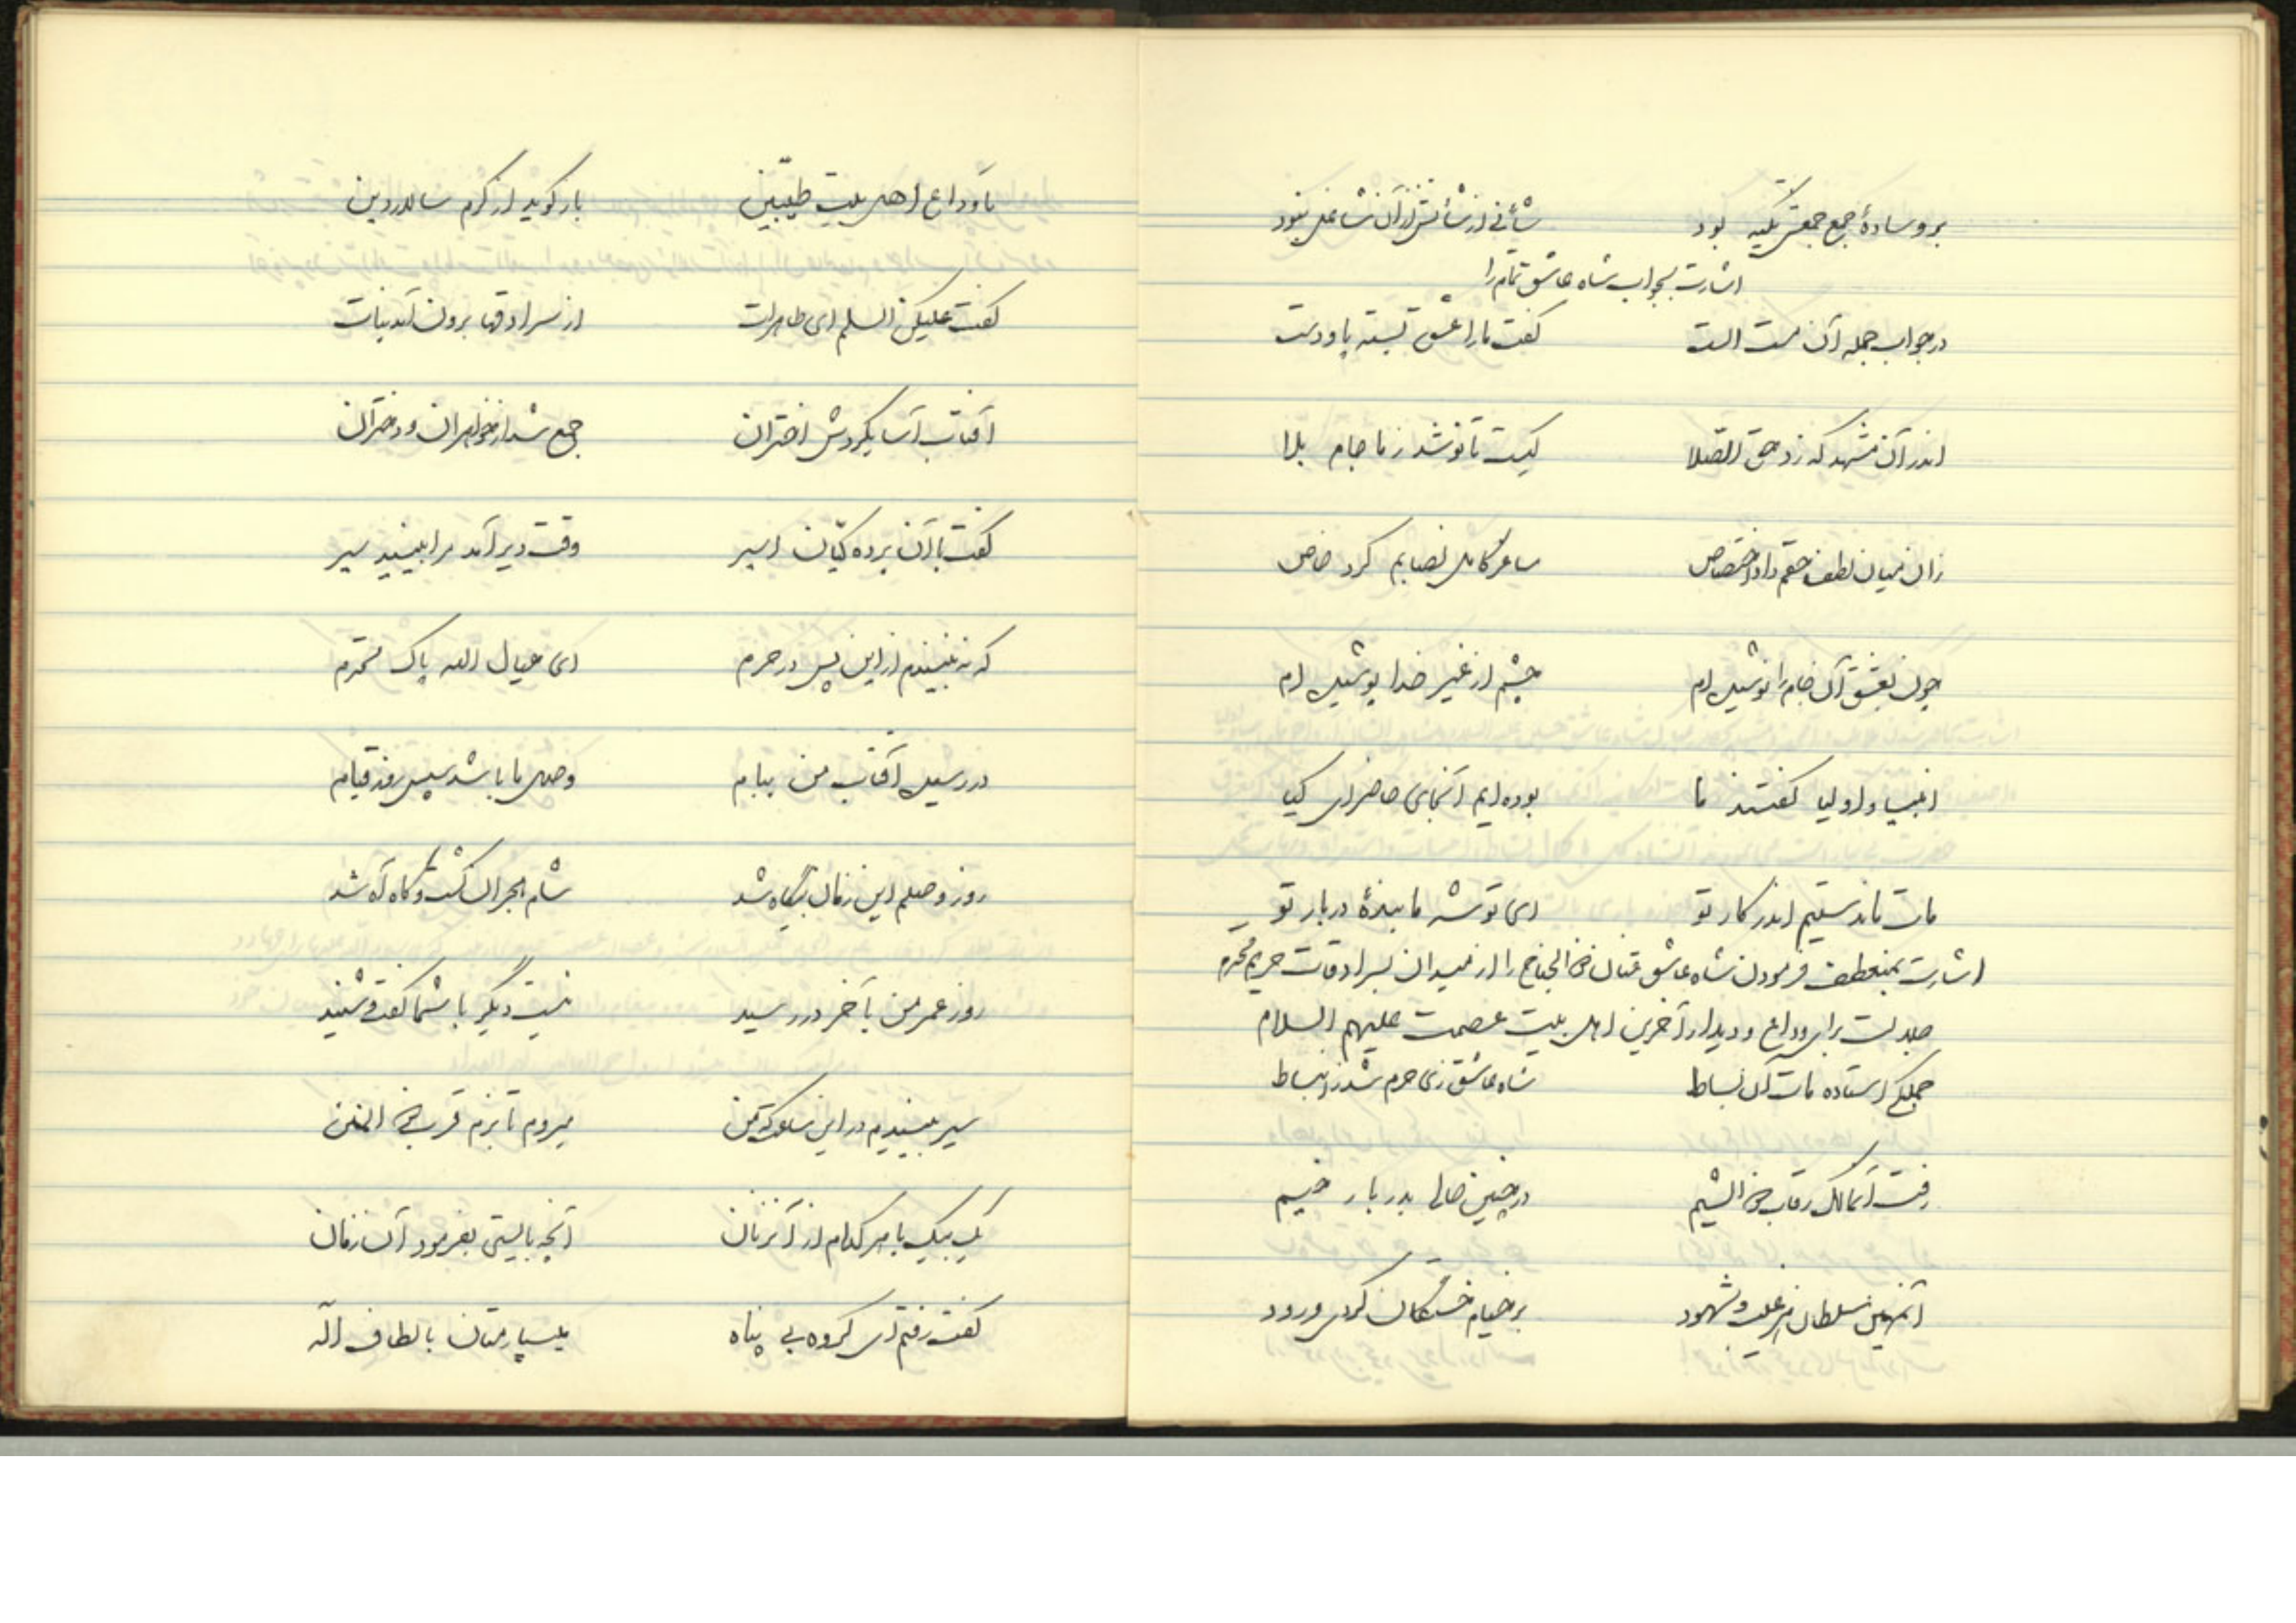 بر وسادهٔ جمع جمعش تکیه بود شأنی از شأنش از آن شاغل نبود
اشارت بجواب شاه عاشق تمام را
در جواب جمله آن مست الست گفت ما را عشق بسته پا و دست
اندر آن مشهد که زد حق الصلا کیست تا نوشد ز ما جام بلا
زان میان لطف حقم داد اختصاص ساغر کامل نصابم کرد خاص
چون بعشق آن جام را نوشیده‌ام چشم از غیر خدا پوشیده‌ام
انبیا و اولیا گفتند ما بوده‌ایم آنجای حاضر ای کیا
مات ماندستیم اندر کار تو ای تو شه ما بندهٔ دربار تو
اشارت بمنعطف فرمودن شاه عاشق عنان ذی الجناح را از میدان بسرادقات حریم محترم
جلالت برای وداع و دیدار آخرین اهل بیت عصمت علیهم السلام
جملگی استاده مات آن بساط شاه عاشق زی حرم شد ز انبساط
رفت آن مالک رقاب ذی الشیم در چنین حالی بدربار خیم
آن مهین سلطان غیب و شهود بر خیام خستگان کردی ورود
تا وداع اهل بیت طیبین باز گوید از کرم سالار دین
گفت علیکن السلم ای طاهرات از سرادقها برون آمد بنات
آفتاب آسا بگردش اختران جمع شد از خواهران و دختران
گفت با آن پرده‌گیان اسیر وقت دیر آمد مرا بینید سیر
که نه بینیدم از این پس در حرم ای عیال الله پاک محترم
در رسیده آفتاب من ببام وصل ما باشد سپس روز قیام
روز وصلم این زمان بیگاه شد شام هجران گشت و گاه آه شد
روز عمر من بآخر در رسید نیست دیگر با شما گفت و شنید
سیر بینیدم در این میروم تا بزم قرب ذی المنن
یک بیک با هر کدام از آن زنان آنچه بایستی بفرمود آن زمان
گفت رفتم ای گروه بی پناه بسپارمتان بالطاف اله